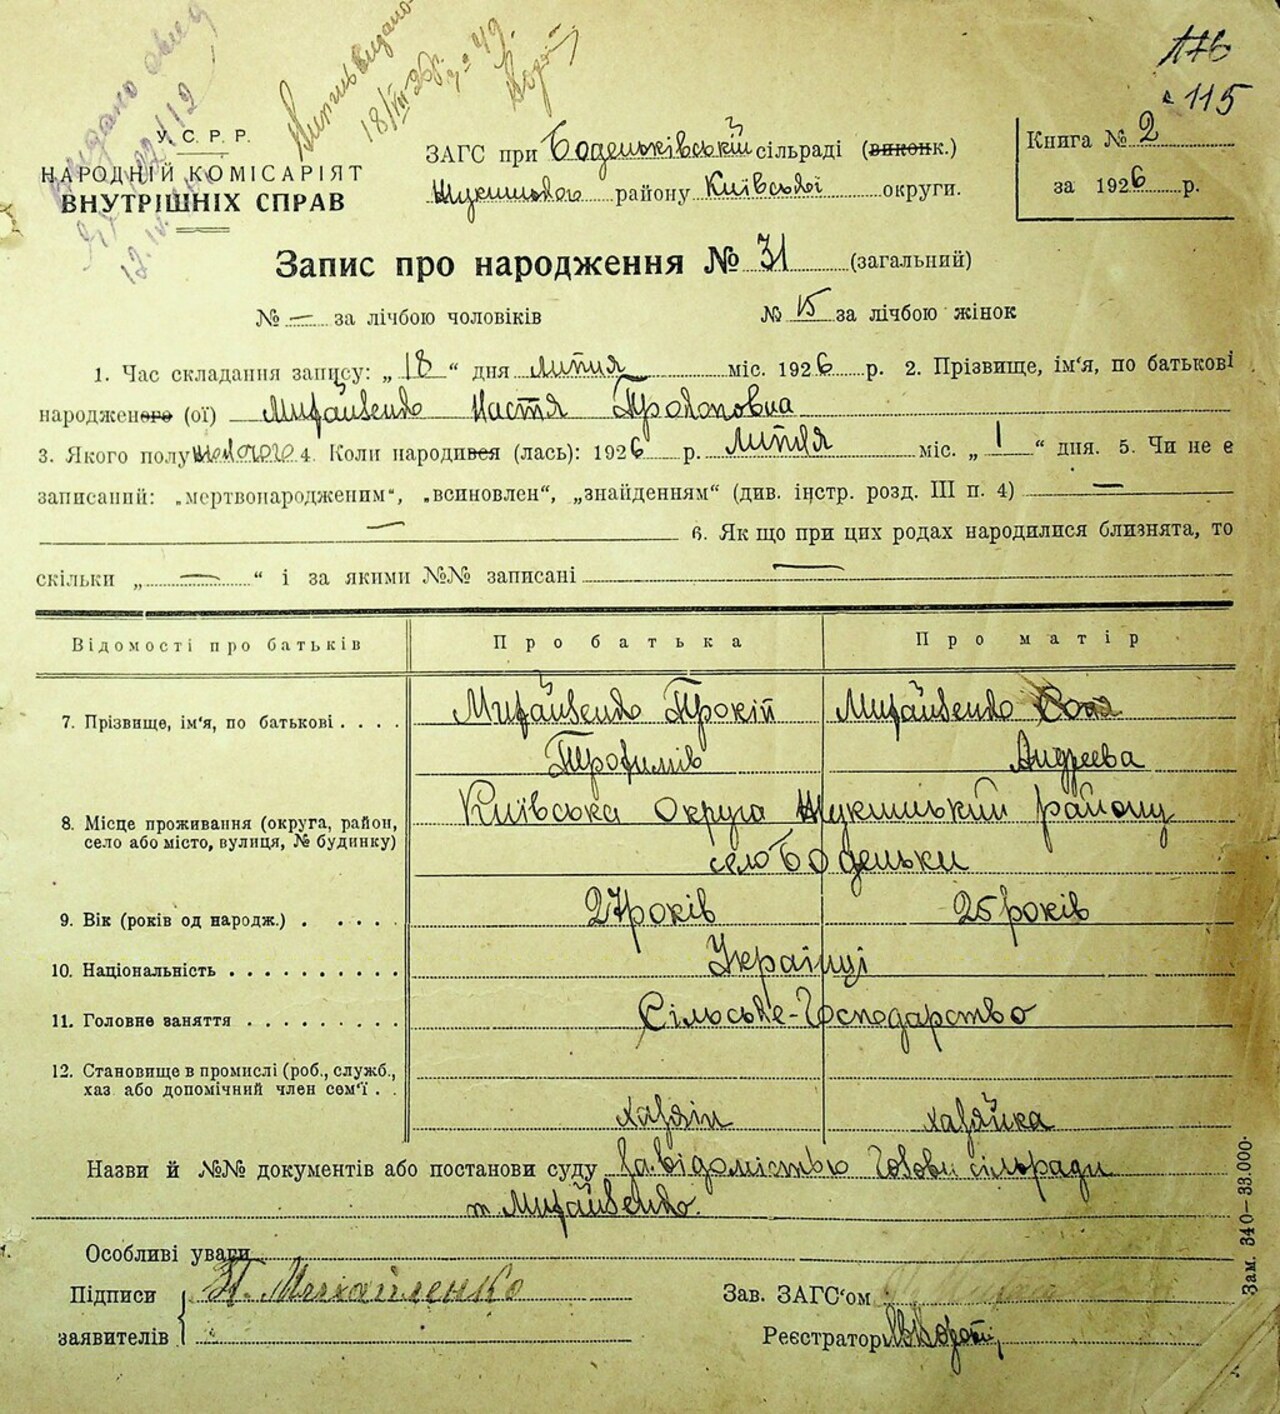 116
115
Видано
Витяг видано
18/VII-26р. № 49.
У. С. Р. Р.
НАРОДНІЙ КОМІСАРІЯТ
ВНУТРІШНІХ СПРАВ
ЗАГС при Боденьківській сільраді (виконк.)
Жукинського району Київської округи.
Книга № 2
за 1926 р.
Запис про народження № 31 (загальний)
№ — за лічбою чоловіків № 15 за лічбою жінок
1. Час складання запису: „18“ дня липня міс. 1926 р. 2. Прізвище, ім'я, по батькові
народженого (ої) Михайленко Настя Прокоповна
3. Якого полу жіночого 4. Коли народився (лась): 1926 р. липня міс. „1“ дня. 5. Чи не є
записаний: „мертвонародженим“, „всиновлен“, „знайденням“ (див. інстр. розд. III п. 4) —
— 6. Як що при цих родах народилися близнята, то
скільки „—“ і за якими №№ записані —
Відомості про батьків Про батька Про матір
7. Прізвище, ім'я, по батькові . . . . Михайленко Прокій Михайленко
Трофимів Андреева
8. Місце проживання (округа, район, село або місто, вулиця, № будинку) Київська Округа Жукинський району
село Боденьки
9. Вік (років од народж.) . . . . . 27 років 25 років
10. Національність . . . . . . . . . . Українці
11. Головне заняття . . . . . . . . . Сільське-Господарство
12. Становище в промислі (роб., служб.,
хаз. або допомічний член сем'ї . . хазяін хазяйка
Назви й №№ документів або постанови суду За відомістью Голови сільради
т. Михайленко.
Особливі уваги
Підписи П. Михайленко Зав. ЗАГС'ом
заявителів Реєстратор
Зам. 340—33.000.